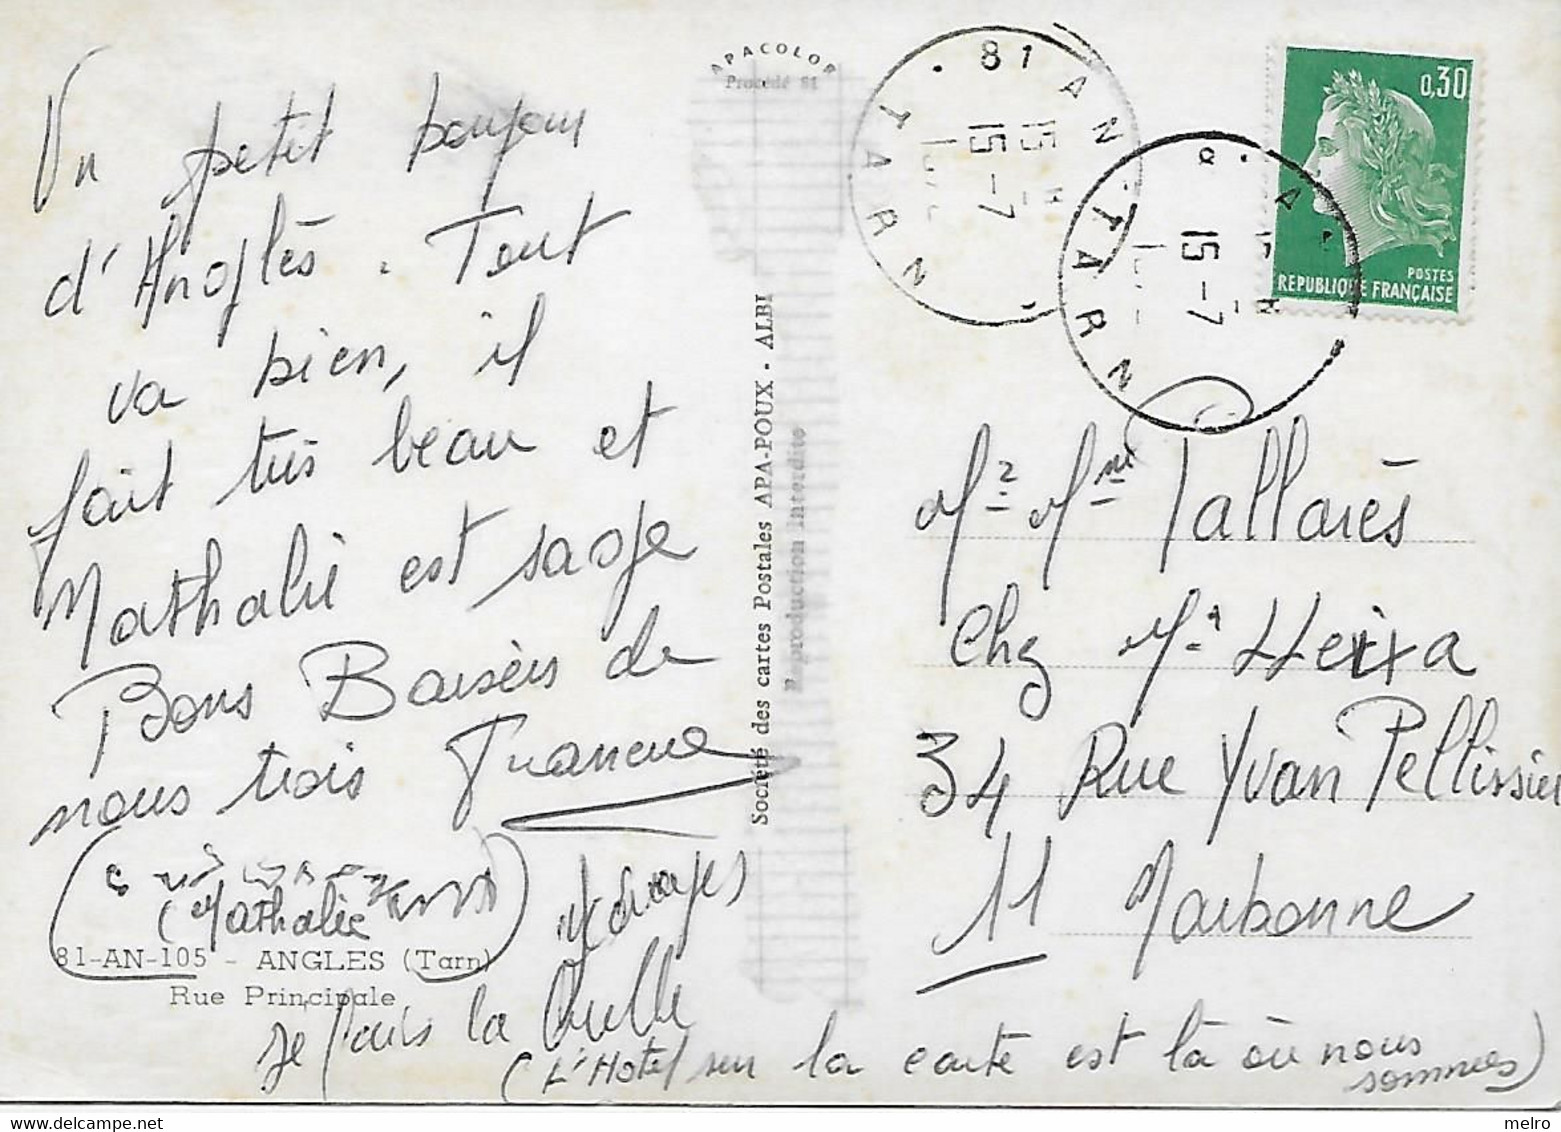 APACOLOR
Procédé 81
Un petit bonjour
d'Anglès. Tout
va bien, il
fait très beau et
Nathalie est sage
Bons Baisers de
nous trois Francine
(Nathalie
81-AN-105 - ANGLES (Tarn)
Rue Principale
je fais la
(L'Hotel sur la carte est là où nous
sommes)
Société des cartes Postales APA-POUX - ALBI
Reproduction interdite
81 AN
TARN
15-7
TARN
15-7
0,30
POSTES
REPUBLIQUE FRANÇAISE
Mr Mme Tallarès
Chez Mr LLeixa
34 Rue Yvan Pellissier
11 Narbonne
melro